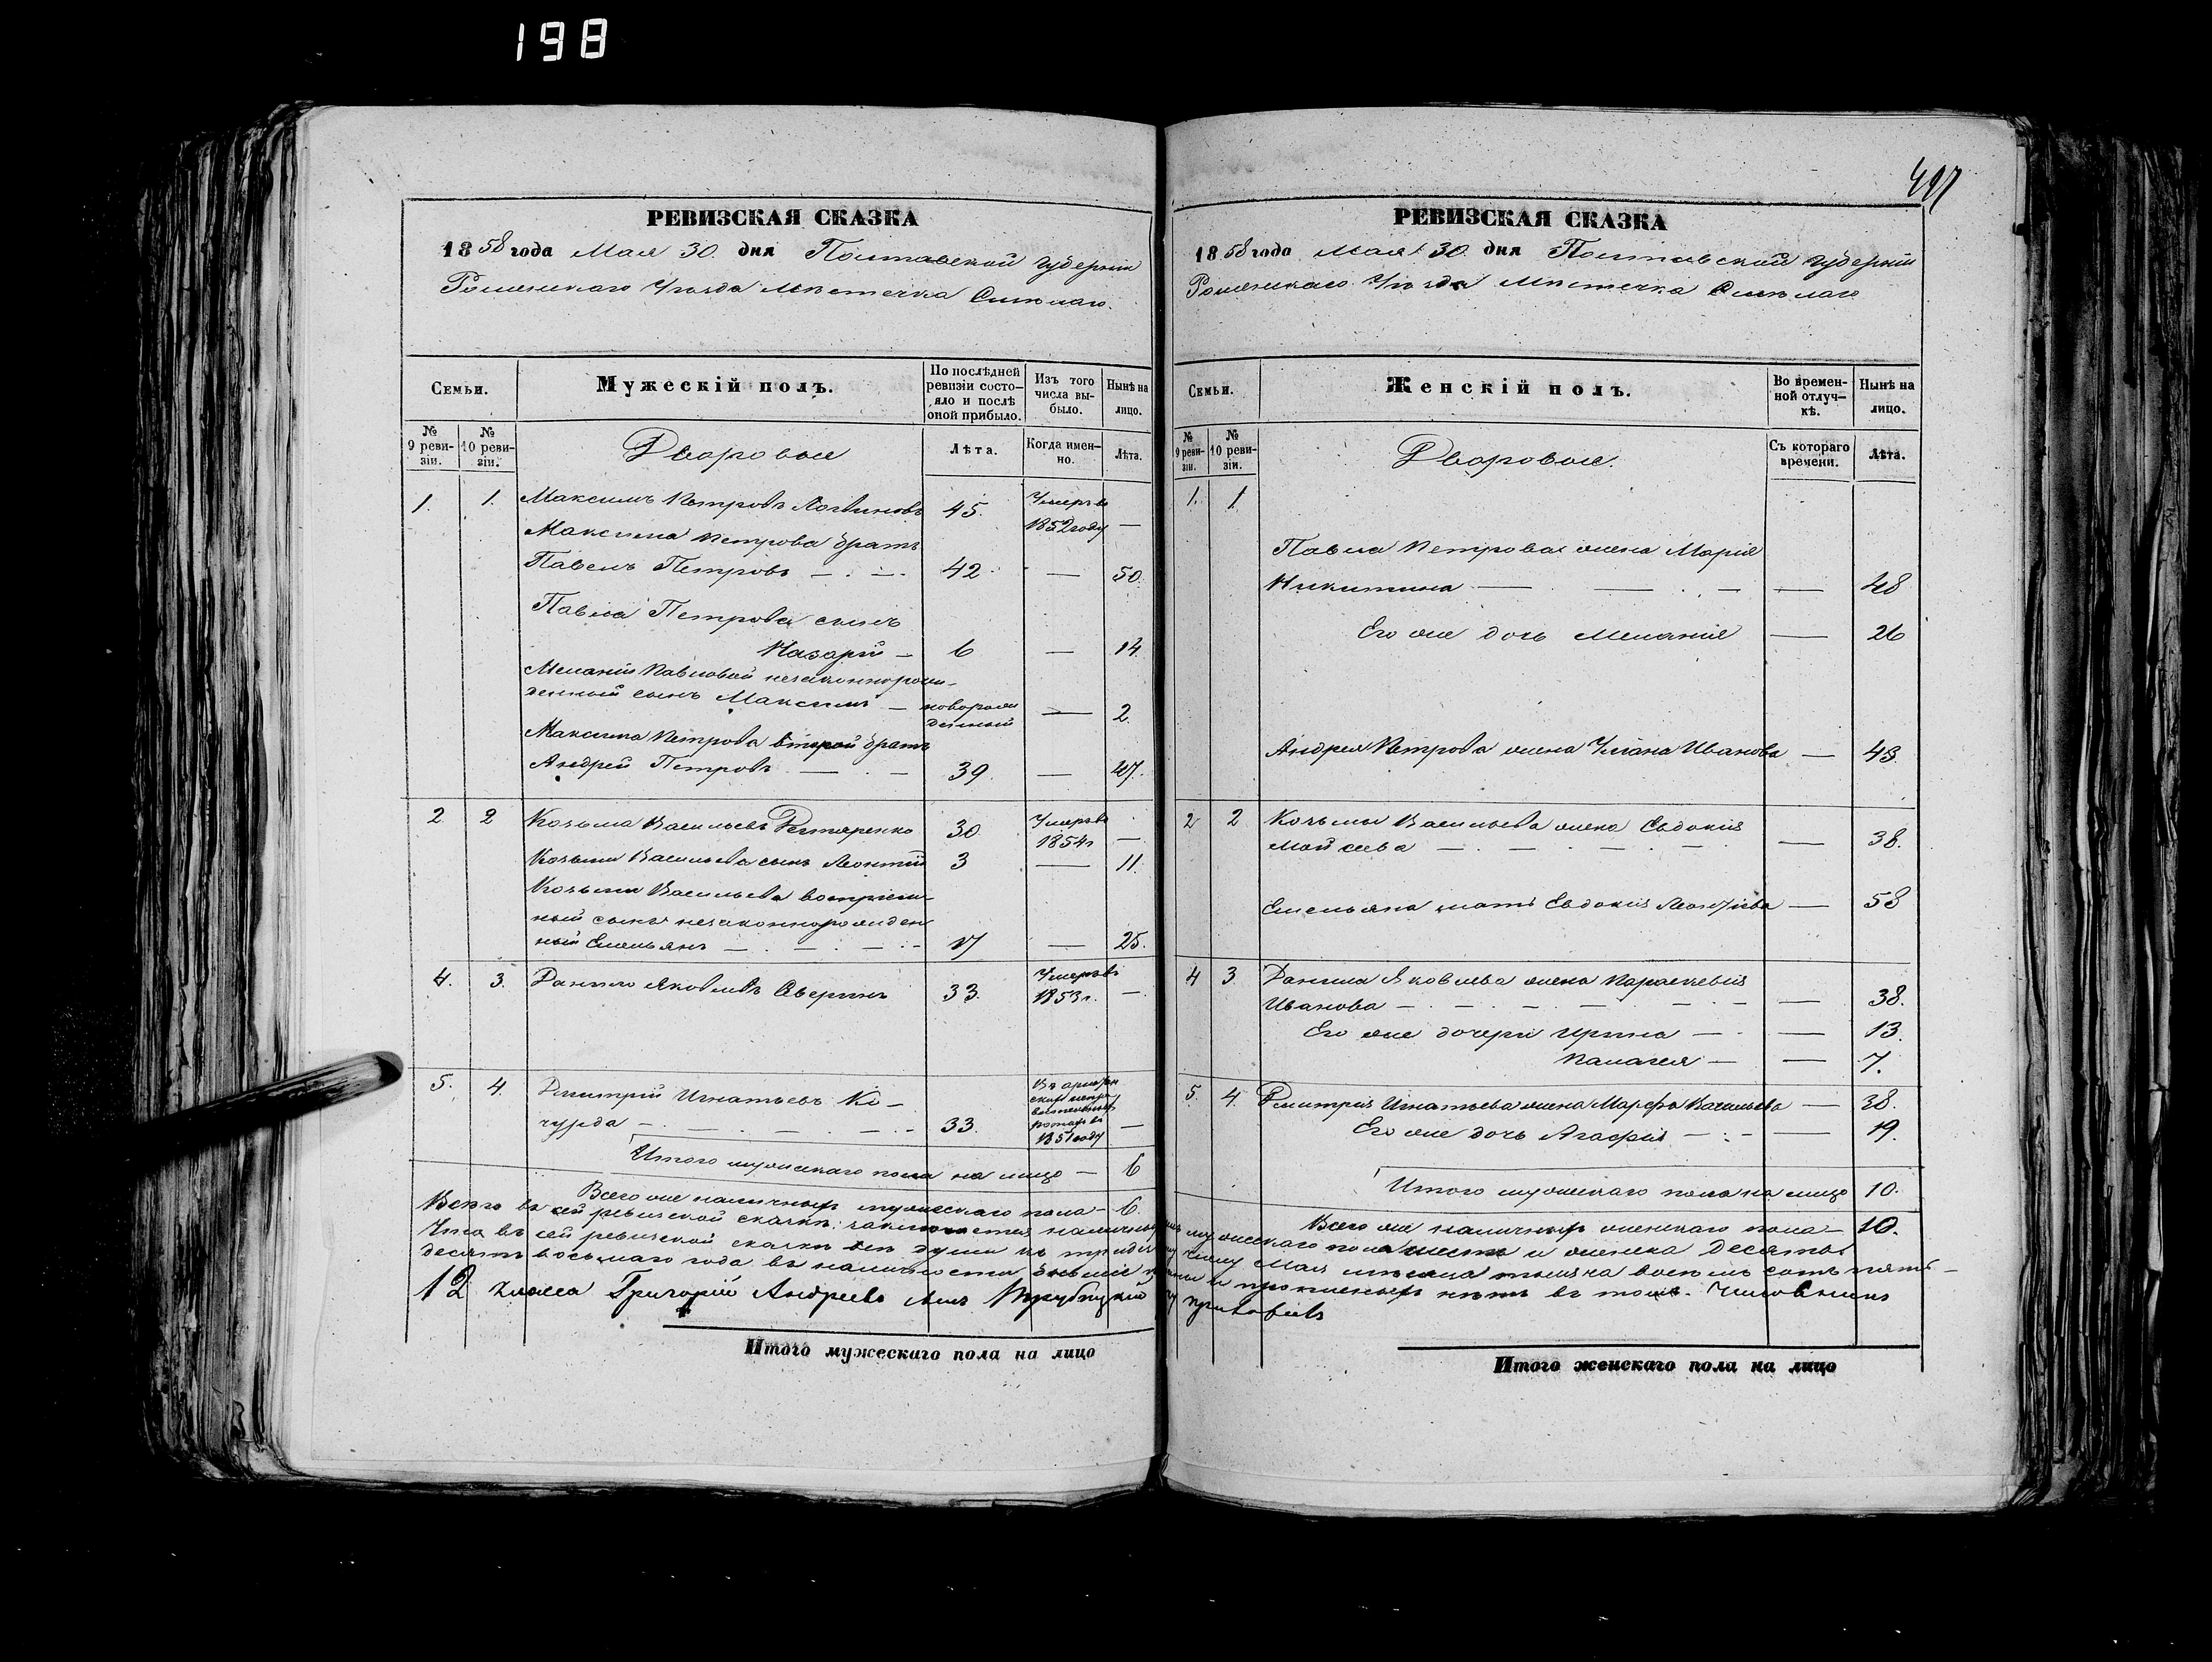 198
497
РЕВИЗСКАЯ СКАЗКА
1858 года Мая 30. дня Полтавской Губерніи
Роменскаго Уѣзда Мѣстечка Смѣлаго.
Семьи.
Мужескій полъ.
По послѣдней ревизіи состо-
яло и послѣ оной прибыло.
Изъ того числа вы-
было.
Нынѣ на лицо.
№ 9 реви-
зіи.
№ 10 реви-
зіи.
Дворовые
Лѣта.
Когда имен-
но.
Лѣта.
1. 1. Максимъ Петровъ Логвиновъ 45. Умеръ въ 1852 году —
Максима Петрова братъ
Павелъ Петровъ — . — . 42 — 50.
Павла Петрова сынъ
Назарій — 6 — 14.
Меланіи Павловой незаконнорож-
денный сынъ Максимъ — новорож
денный — 2.
Максима Петрова второй братъ
Андрей Петровъ — . — 39. — 47.
2 2 Козьма Васильевъ Дегтяренко 30. Умеръ въ 1854 г —
Козьмы Васильева сынъ Леонтій 3 — 11.
Козьмы Васильева воспріем-
ный сынъ незаконнорожден
ный Емельянъ — . — . — . - 17 — 25.
4. 3. Данило Яковлевъ Аверинъ 33. Умеръ въ 1853 г. —
5. 4. Дмитрій Игнатьевъ Ко-
чурда — . — . — . — . - 33. 1851 году —
Итого мужескаго пола на лицо — 6
Всего же наличныхъ мужескаго пола — 6.
РЕВИЗСКАЯ СКАЗКА
1858 года Мая 30. дня Полтавской Губерніи
Роменскаго Уѣзда Мѣстечка Смѣлаго
Семьи.
Женскій полъ.
Во времен-
ной отлуч-
кѣ.
Нынѣ на лицо.
№ 9 реви-
зіи.
№ 10 реви-
зіи.
Дворовые.
Съ котораго времени.
Лѣта.
1. 1
Павла Петрова жена Марія
Никитина — . — . — — 48
Его же дочь Меланія — 26
Андрея Петрова жена Ульяна Иванова — 43.
2 2 Козьмы Васильева жена Евдокія
Мойсеева — . — . — . — . — 38.
Емельяна мать Евдокія Леонтіева — 58
4 3 Данила Яковлева жена Параскевія
Иванова — . — . — . — . — — 38.
Его же дочери Ирина — . — 13.
Палагея — — 7.
5. 4. Дмитрія Игнатьева жена Марфа Васильева — 38.
Его же дочь Агафія — . - — 19.
Итого мужескаго пола на лицо 10.
Всего же наличныхъ женскаго пола — 10.
Всего въ сей ревизской сказкѣ заключается наличныхъ мужескаго пола шесть и женска десять.
Что въ сей ревизской сказкѣ всѣ души къ числу Мая мѣсяца тысяча восемь сотъ пять-
десятъ восьмаго года въ наличности бывшіе и прописныхъ нѣтъ въ томъ. Чиновникъ
12 класса Григорій Андреевъ сынъ
Итого мужескаго пола на лицо
Итого женскаго пола на лицо